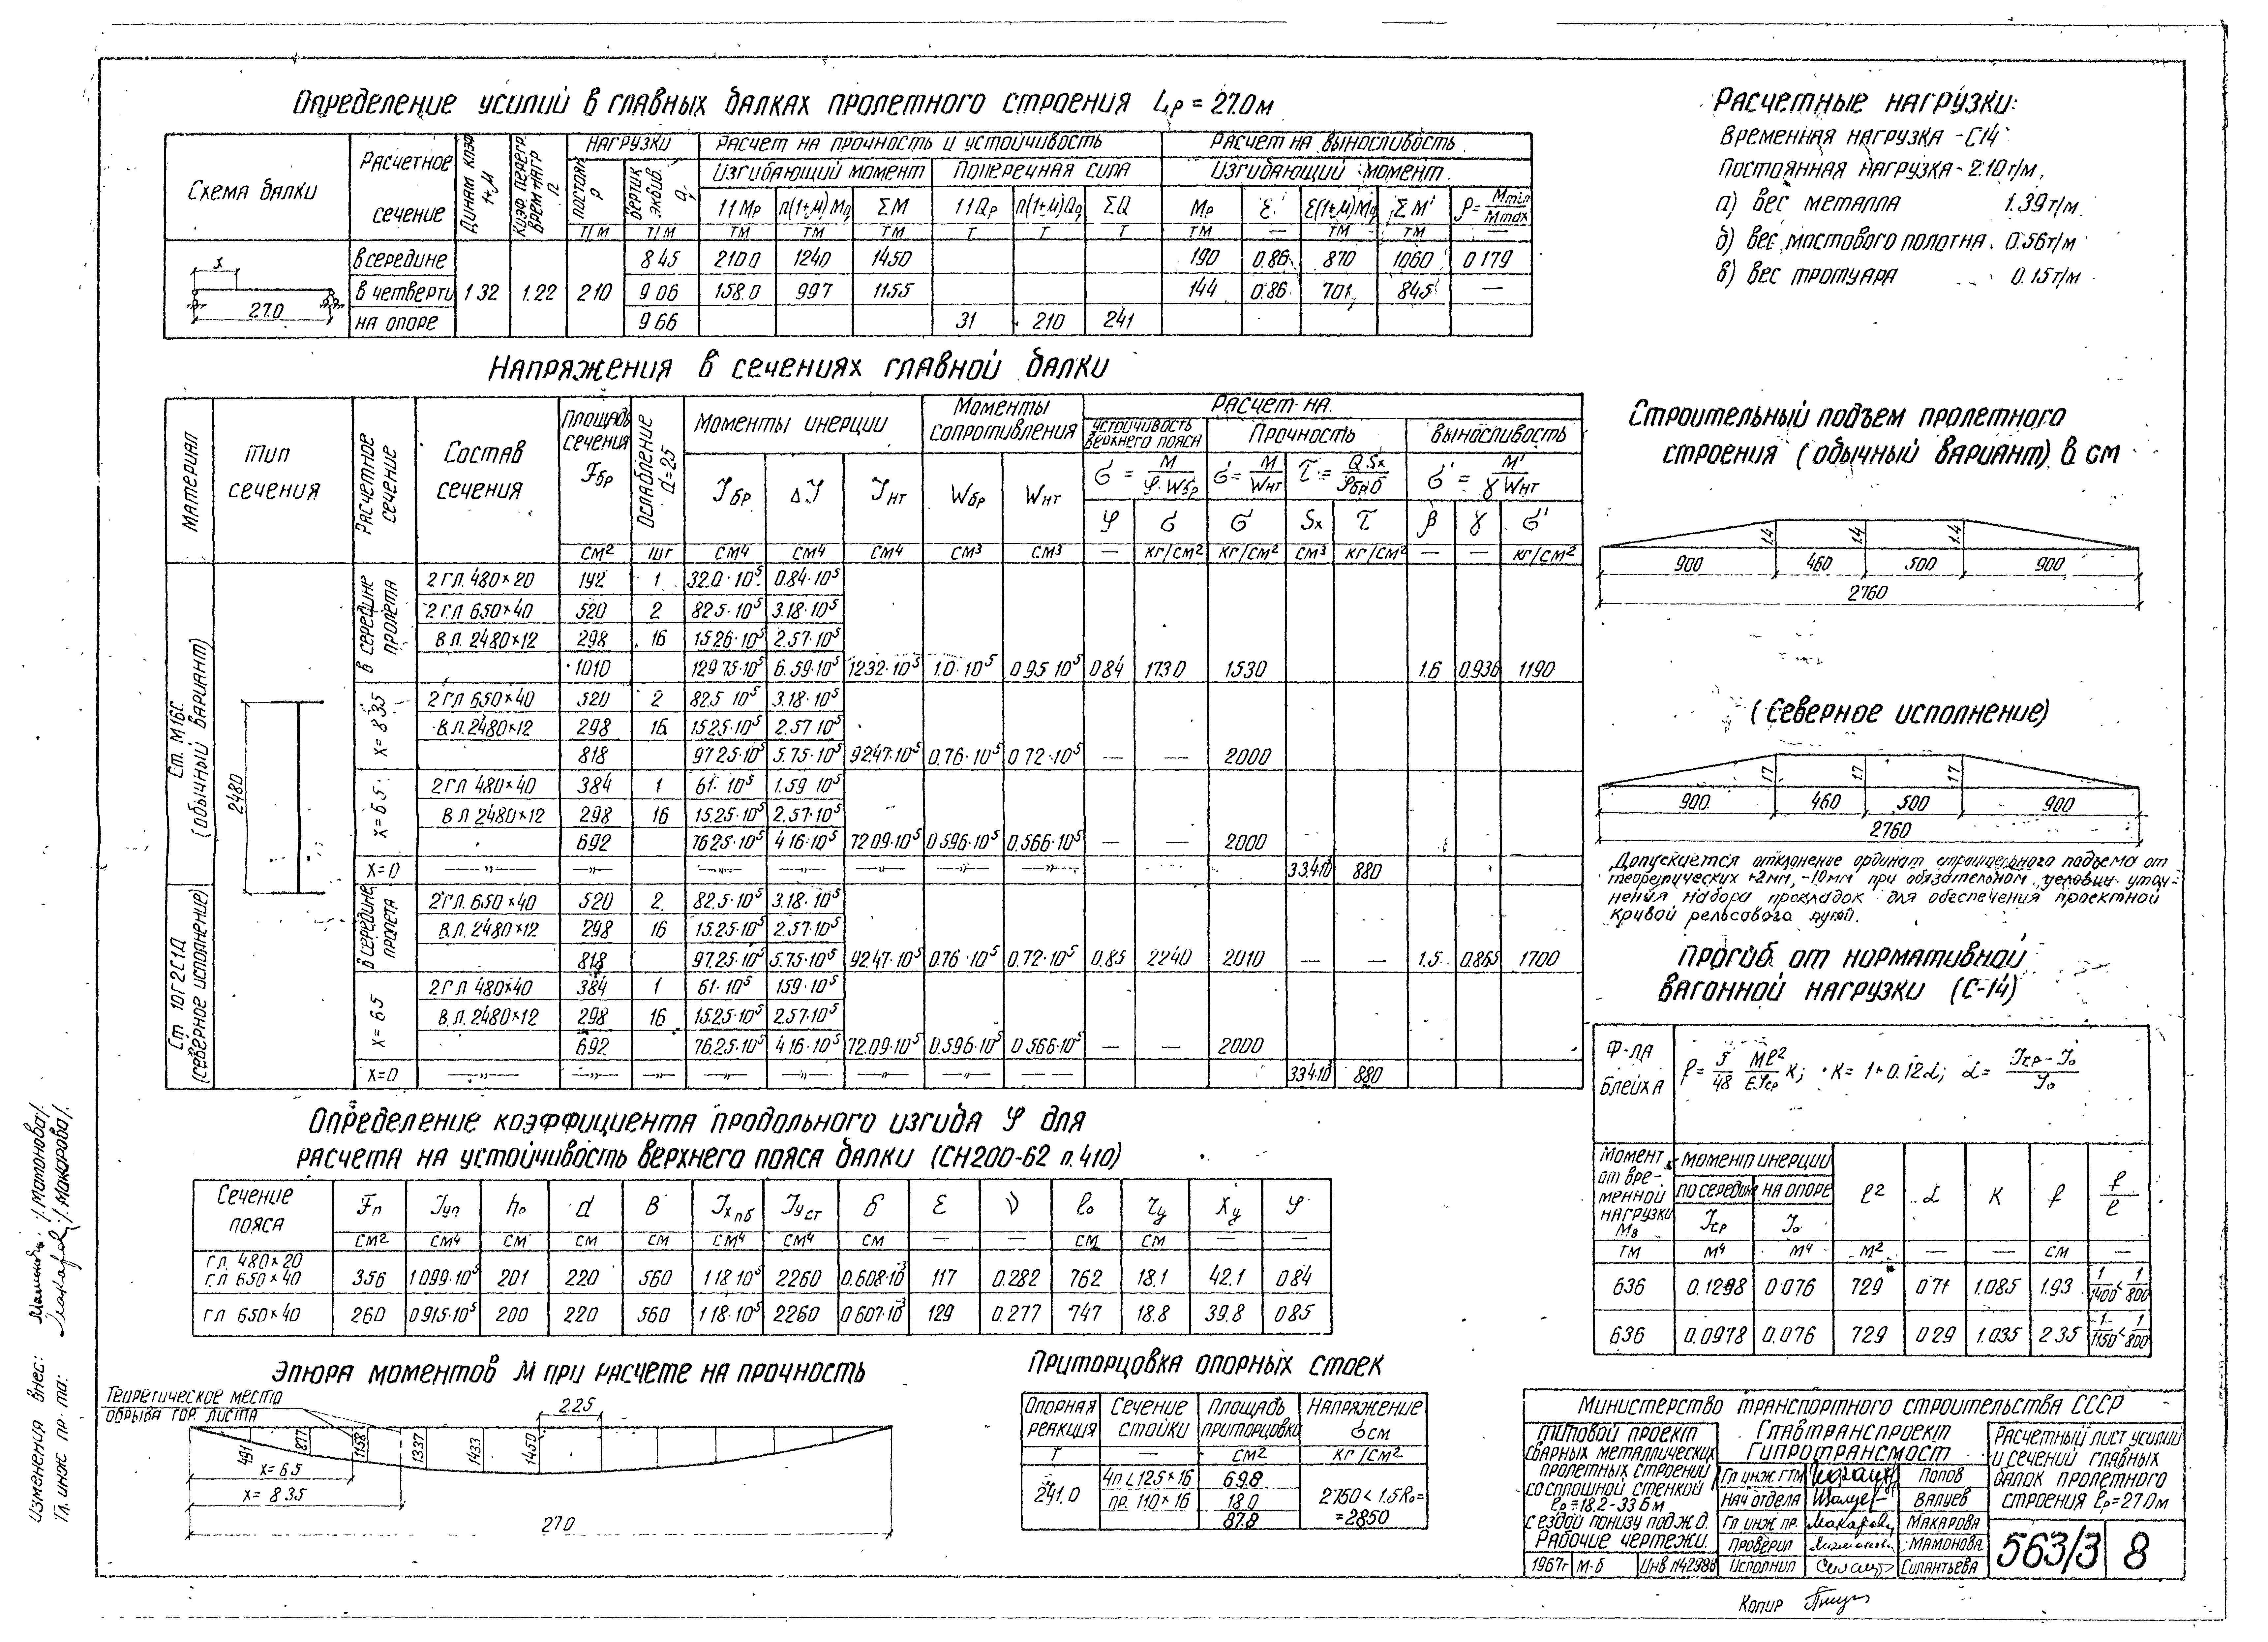 Определение усилий в главных балках пролетного строения Lр = 27.0м
Схема балки | Расчетное сечение | Динам коэф 1+μ | Коэф. перегр. врем нагр n | Нагрузки | Расчет на прочность и устойчивость | Расчет на выносливость
постоян р | вертик эквив. q | Изгибающий момент | Поперечная сила | Изгибающий момент
1.1 Mр | n(1+μ)Mq | ΣM | 1.1 Qр | n(1+μ)Qq | ΣQ | Mр | ε | ε(1+μ)Mq | ΣM' | ρ = Mmin/Mmax
т/м | т/м | тм | тм | тм | т | т | т | тм | — | тм | тм | —
x
27.0
в середине | 8.45 | 210.0 | 1240 | 1450 | 190 | 0.86 | 870 | 1060 | 0.179
в четверти | 1.32 | 1.22 | 2.10 | 9.06 | 158.0 | 997 | 1155 | 144 | 0.86 | 701 | 845 | —
на опоре | 9.66 | 31 | 210 | 241
Расчетные нагрузки:
Временная нагрузка - С14
Постоянная нагрузка - 2.10 т/м,
а) вес металла 1.39 т/м
б) вес мостового полотна 0.56 т/м
в) вес тротуара 0.15 т/м
Напряжения в сечениях главной балки
Материал | Тип сечения | Расчетное сечение | Состав сечения | Площадь сечения Fбр | Ослабление d=25 | Моменты инерции | Моменты сопротивления | Расчет на
устойчивость верхнего пояса | Прочность | Выносливость
Jбр | ΔJ | Jнт | Wбр | Wнт | σ = M/φ·Wбр | σ = M/Wнт | τ = Q·Sx/Jбр·δ | σ' = M'/γ Wнт
φ | σ | σ | Sx | τ | β | γ | σ'
см² | шт | см⁴ | см⁴ | см⁴ | см³ | см³ | — | кг/см² | кг/см² | см³ | кг/см² | — | — | кг/см²
Ст. М16С (обычный вариант)
2480
в середине пролета
2 г.л. 480×20 | 192 | 1 | 32.0·10⁵ | 0.84·10⁵
2 г.л. 650×40 | 520 | 2 | 82.5·10⁵ | 3.18·10⁵
в.л. 2480×12 | 298 | 16 | 15.26·10⁵ | 2.57·10⁵
1010 | 129.75·10⁵ | 6.59·10⁵ | 123.2·10⁵ | 1.0·10⁵ | 0.95·10⁵ | 0.84 | 1730 | 1530 | 1.6 | 0.936 | 1190
x=8.35
2 г.л. 650×40 | 520 | 2 | 82.5·10⁵ | 3.18·10⁵
в.л. 2480×12 | 298 | 16 | 15.25·10⁵ | 2.57·10⁵
818 | 97.25·10⁵ | 5.75·10⁵ | 92.47·10⁵ | 0.76·10⁵ | 0.72·10⁵ | — | — | 2000
x=6.5
2 г.л. 480×40 | 384 | 1 | 61·10⁵ | 1.59·10⁵
в.л. 2480×12 | 298 | 16 | 15.25·10⁵ | 2.57·10⁵
692 | 76.25·10⁵ | 4.16·10⁵ | 72.09·10⁵ | 0.596·10⁵ | 0.566·10⁵ | — | — | 2000
x=0 | —"— | —"— | —"— | —"— | —"— | —"— | —"— | —"— | 880
Ст 10Г2С1Д (северное исполнение)
в середине пролета
2 г.л. 650×40 | 520 | 2 | 82.5·10⁵ | 3.18·10⁵
в.л. 2480×12 | 298 | 16 | 15.25·10⁵ | 2.57·10⁵
818 | 97.25·10⁵ | 5.75·10⁵ | 92.47·10⁵ | 0.76·10⁵ | 0.72·10⁵ | 0.85 | 2240 | 2010 | — | — | 1.5 | 0.865 | 1700
x=6.5
2 г.л. 480×40 | 384 | 1 | 61·10⁵ | 1.59·10⁵
в.л. 2480×12 | 298 | 16 | 15.25·10⁵ | 2.57·10⁵
692 | 76.25·10⁵ | 4.16·10⁵ | 72.09·10⁵ | 0.596·10⁵ | 0.566·10⁵ | — | — | 2000
x=0 | —"— | —"— | —"— | —"— | —"— | —"— | —"— | —"— | 880
Строительный подъем пролетного
строения (обычный вариант) в см
1.4 | 1.4 | 1.4
900 | 460 | 500 | 900
2760
(Северное исполнение)
1.7 | 1.7 | 1.7
900 | 460 | 500 | 900
2760
Допускается отклонение ординат строительного подъема от
теоретических +2мм, -10мм при обязательном условии уточ-
нения набора прокладок для обеспечения проектной
кривой рельсового пути.
Прогиб от нормативной
вагонной нагрузки (С-14)
Ф-ла Блейха | f = 5/48 Ml²/EJср K; K = 1+0.12α; α = Jср - J₀/J₀
Момент от временной нагрузки Mв | Момент инерции | l² | α | K | f | f/l
по середине Jср | на опоре J₀
тм | м⁴ | м⁴ | м² | — | — | см | —
636 | 0.1298 | 0.076 | 729 | 0.71 | 1.085 | 1.93 | 1/1400 < 1/800
636 | 0.0978 | 0.076 | 729 | 0.29 | 1.035 | 2.35 | 1/1150 < 1/800
Определение коэффициента продольного изгиба φ для
расчета на устойчивость верхнего пояса балки (СН200-62 п.410)
Сечение пояса | Fп | Jуп | h₀ | d | B | Jх пб | Jу ст | δ | ε | ν | l₀ | rу | λу | φ
см² | см⁴ | см | см | см | см⁴ | см⁴ | см | — | — | см | см | — | —
г.л. 480×20
г.л. 650×40 | 356 | 1.099·10⁵ | 201 | 220 | 560 | 1.18·10⁵ | 2260 | 0.608·10⁻³ | 117 | 0.282 | 762 | 18.1 | 42.1 | 0.84
г.л. 650×40 | 260 | 0.915·10⁵ | 200 | 220 | 560 | 1.18·10⁵ | 2260 | 0.607·10⁻³ | 129 | 0.277 | 747 | 18.8 | 39.8 | 0.85
Эпюра моментов M при расчете на прочность
Теоретическое место
обрыва гор. листа
2.25
491 | 877 | 1158 | 1337 | 1433 | 1450
x=6.5
x=8.35
27.0
Приторцовка опорных стоек
Опорная реакция | Сечение стойки | Площадь приторцовки | Напряжение σсм
т | — | см² | кг/см²
241.0 | 4п∟125×16 | 69.8
пр. 110×16 | 18.0 | 2750 < 1.5R₀ =
87.8 | = 2850
Министерство транспортного строительства СССР
Типовой проект
сварных металлических
пролетных строений
со сплошной стенкой
lр = 18.2-33.6 м
с ездой понизу под ж.д.
Рабочие чертежи.
1967г | М-б | Инв №42986
Главтранспроект
Гипротрансмост
Гл инж ГТМ | Попов
Нач отдела | Валуев
Гл инж пр. | Макарова
Проверил | Мамонова
Исполнил | Силантьева
Расчетный лист усилий
и сечений главных
балок пролетного
строения lр=27.0м
563/3 | 8
Копир
Изменения внес: /Мамонова/.
Гл. инж пр-та: /Макарова/.